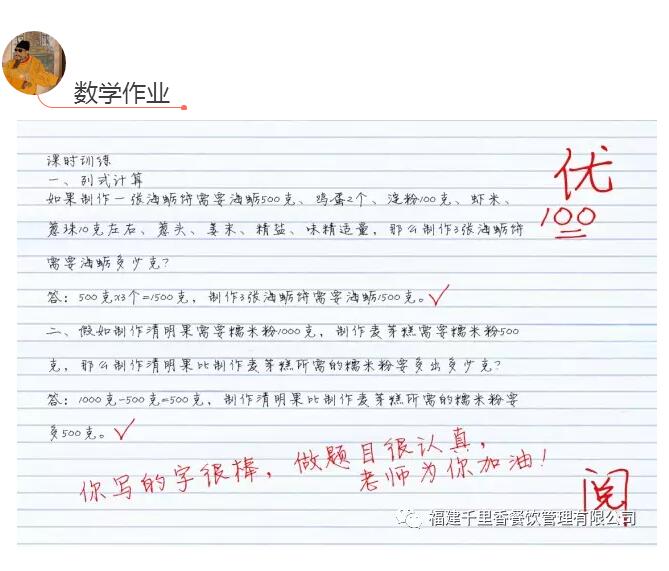 数学作业
课时训练
一、列式计算
如果制作一张海蛎饼需要海蛎500克、鸡蛋2个、淀粉100克、虾米、
葱珠10克左右、葱头、姜末、精盐、味精适量，那么制作3张海蛎饼
需要海蛎多少克？
答：500克x3个=1500克，制作3张海蛎饼需要海蛎1500克。
二、假如制作清明果需要糯米粉1000克，制作麦芽糕需要糯米粉500
克，那么制作清明果比制作麦芽糕所需的糯米粉要多出多少克？
答：1000克-500克=500克，制作清明果比制作麦芽糕所需的糯米粉要
多500克。
优
100
你写的字很棒，做题目很认真，
老师为你加油！
阅
福建千里香餐饮管理有限公司